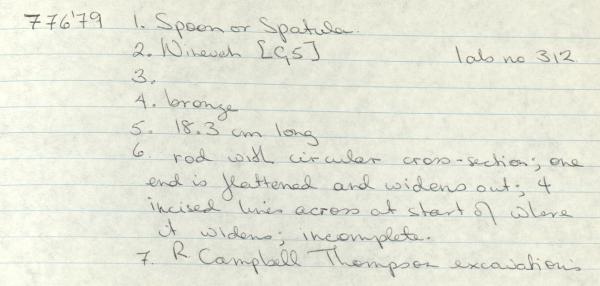 776'79 1. Spoon or Spatula.
2. Nineveh [G5] lab no 312
3.
4. bronze
5. 18.3 cm long
6. rod with circular cross-section; one
end is flattened and widens out; 4
incised lines across at start of where
it widens; incomplete.
7. R. Campbell Thompson excavations